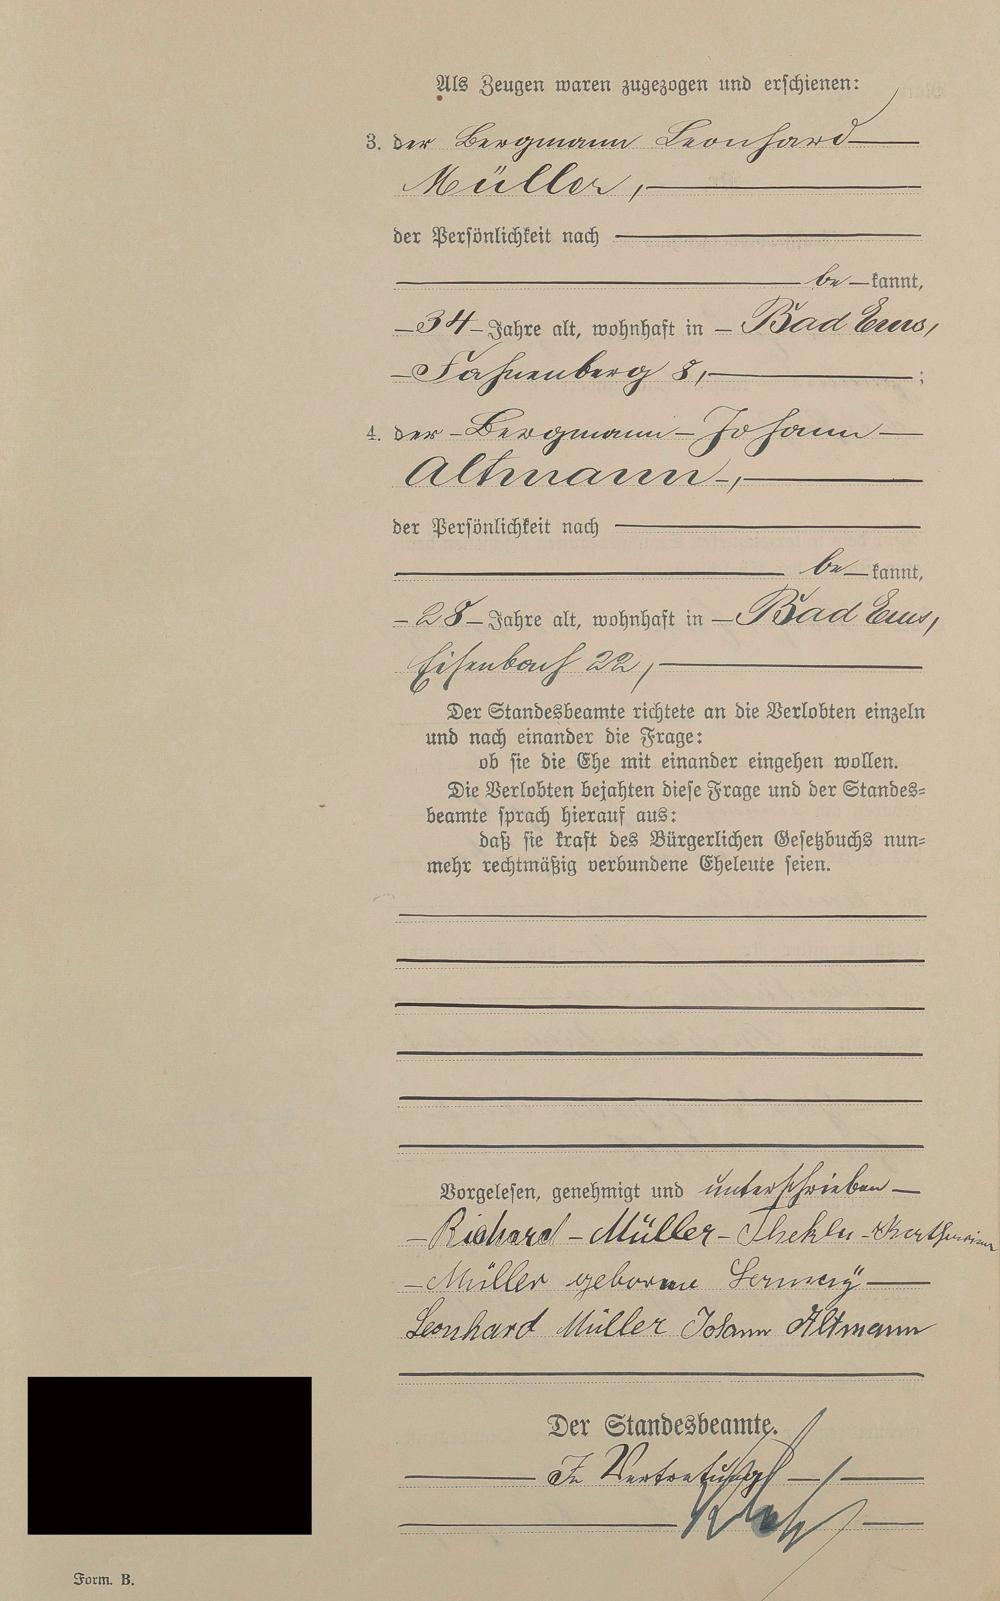 Als Zeugen waren zugezogen und erschienen:
3. der Bergmann Leonhard
Müller,
der Persönlichkeit nach
be kannt,
34 Jahre alt, wohnhaft in Bad Ems,
Fahnenberg 8, ;
4. der Bergmann Johann
Altmann,
der Persönlichkeit nach
be kannt,
28 Jahre alt, wohnhaft in Bad Ems,
Eisenbach 22,
Der Standesbeamte richtete an die Verlobten einzeln
und nach einander die Frage:
ob sie die Ehe mit einander eingehen wollen.
Die Verlobten bejahten diese Frage und der Standes=
beamte sprach hierauf aus:
daß sie kraft des Bürgerlichen Gesetzbuchs nun=
mehr rechtmäßig verbundene Eheleute seien.
Vorgelesen, genehmigt und unterschrieben
Richard Müller Thekla
Müller geborene
Leonhard Müller Johann Altmann
Der Standesbeamte.
In Vertretung
Form. B.